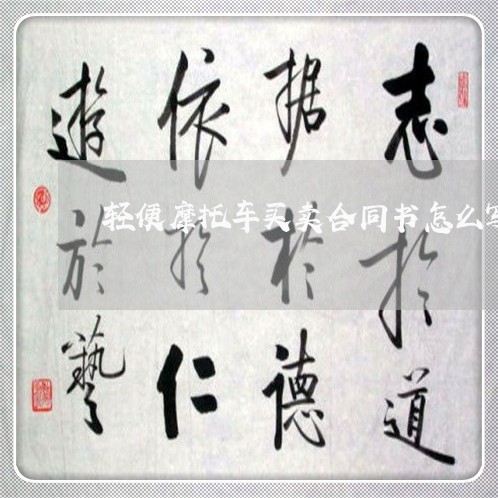 志於道
据於德
依於仁
遊於藝
轻便摩托车买卖合同书怎么